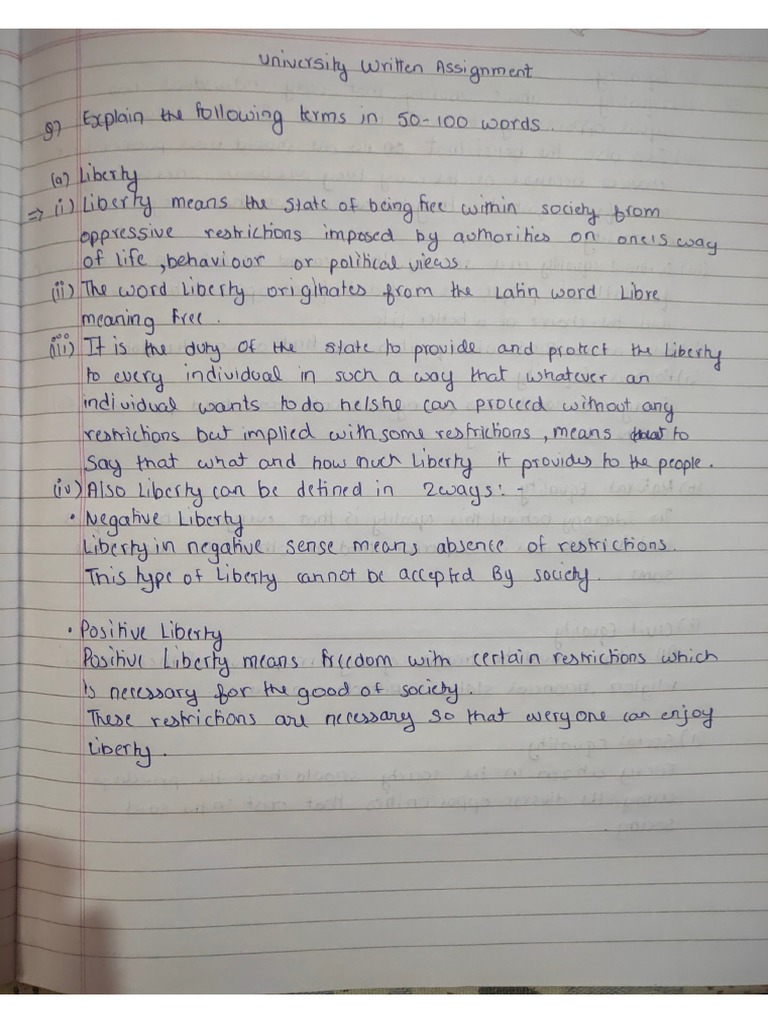 University Written Assignment
Q) Explain the following terms in 50-100 words.
(a) Liberty
⇒ (i) Liberty means the state of being free within society from
oppressive restrictions imposed by authorities on one's way
of life, behaviour or political views.
(ii) The word Liberty originates from the Latin word Libre
meaning free.
(iii) It is the duty of the state to provide and protect the Liberty
to every individual in such a way that whatever an
individual wants to do he/she can proceed without any
restrictions but implied with some restrictions, means to
say that what and how much Liberty it provides to the people.
(iv) Also Liberty can be defined in 2 ways: -
• Negative Liberty
Liberty in negative sense means absence of restrictions.
This type of Liberty cannot be accepted By society.
• Positive Liberty
Positive Liberty means freedom with certain restrictions which
is necessary for the good of society.
These restrictions are necessary so that everyone can enjoy
Liberty.